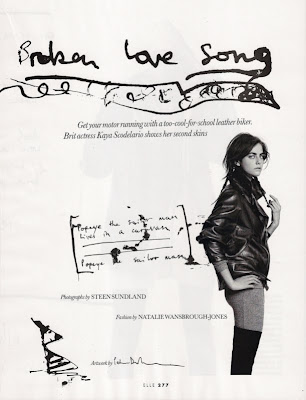 Broken love song
Get your motor running with a too-cool-for-school leather biker.
Brit actress Kaya Scodelario shows her second skins
Popeye the sailor man
lives in a caravan
Popeye the sailor man
Photographs by STEEN SUNDLAND
Fashion by NATALIE WANSBROUGH-JONES
Artwork by
ELLE 277